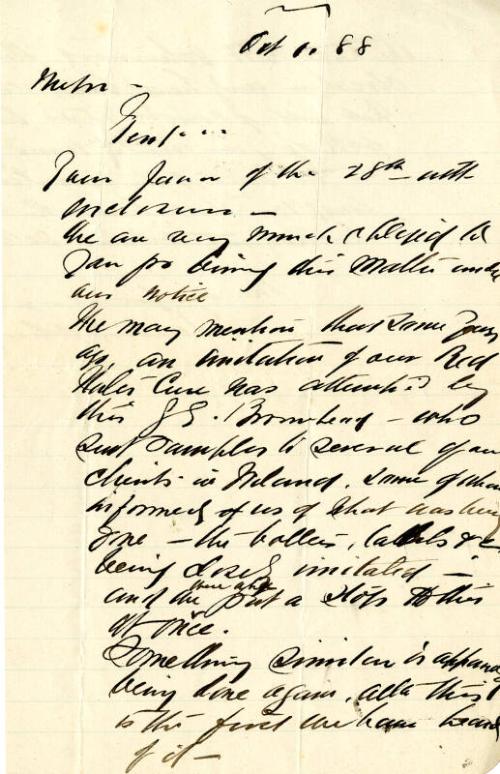 Oct 1. 88
Messrs -
Gent...
Your favor of the 28th with
inclosure -
We are very much obliged to
you for bring this matter under
our notice
We may mention that some years
ago, an imitation of our Red
Cure was attempted by
this J E. Bromhead - who
sent samples to several of our
clients in Ireland. some of whom
informed of us of what was being
done - the bottles, labels & c
being closely imitated -
and we were able put a stop to this
at once.
Something similar is apparently
being done again, altho this
is the first we have heard
of it -